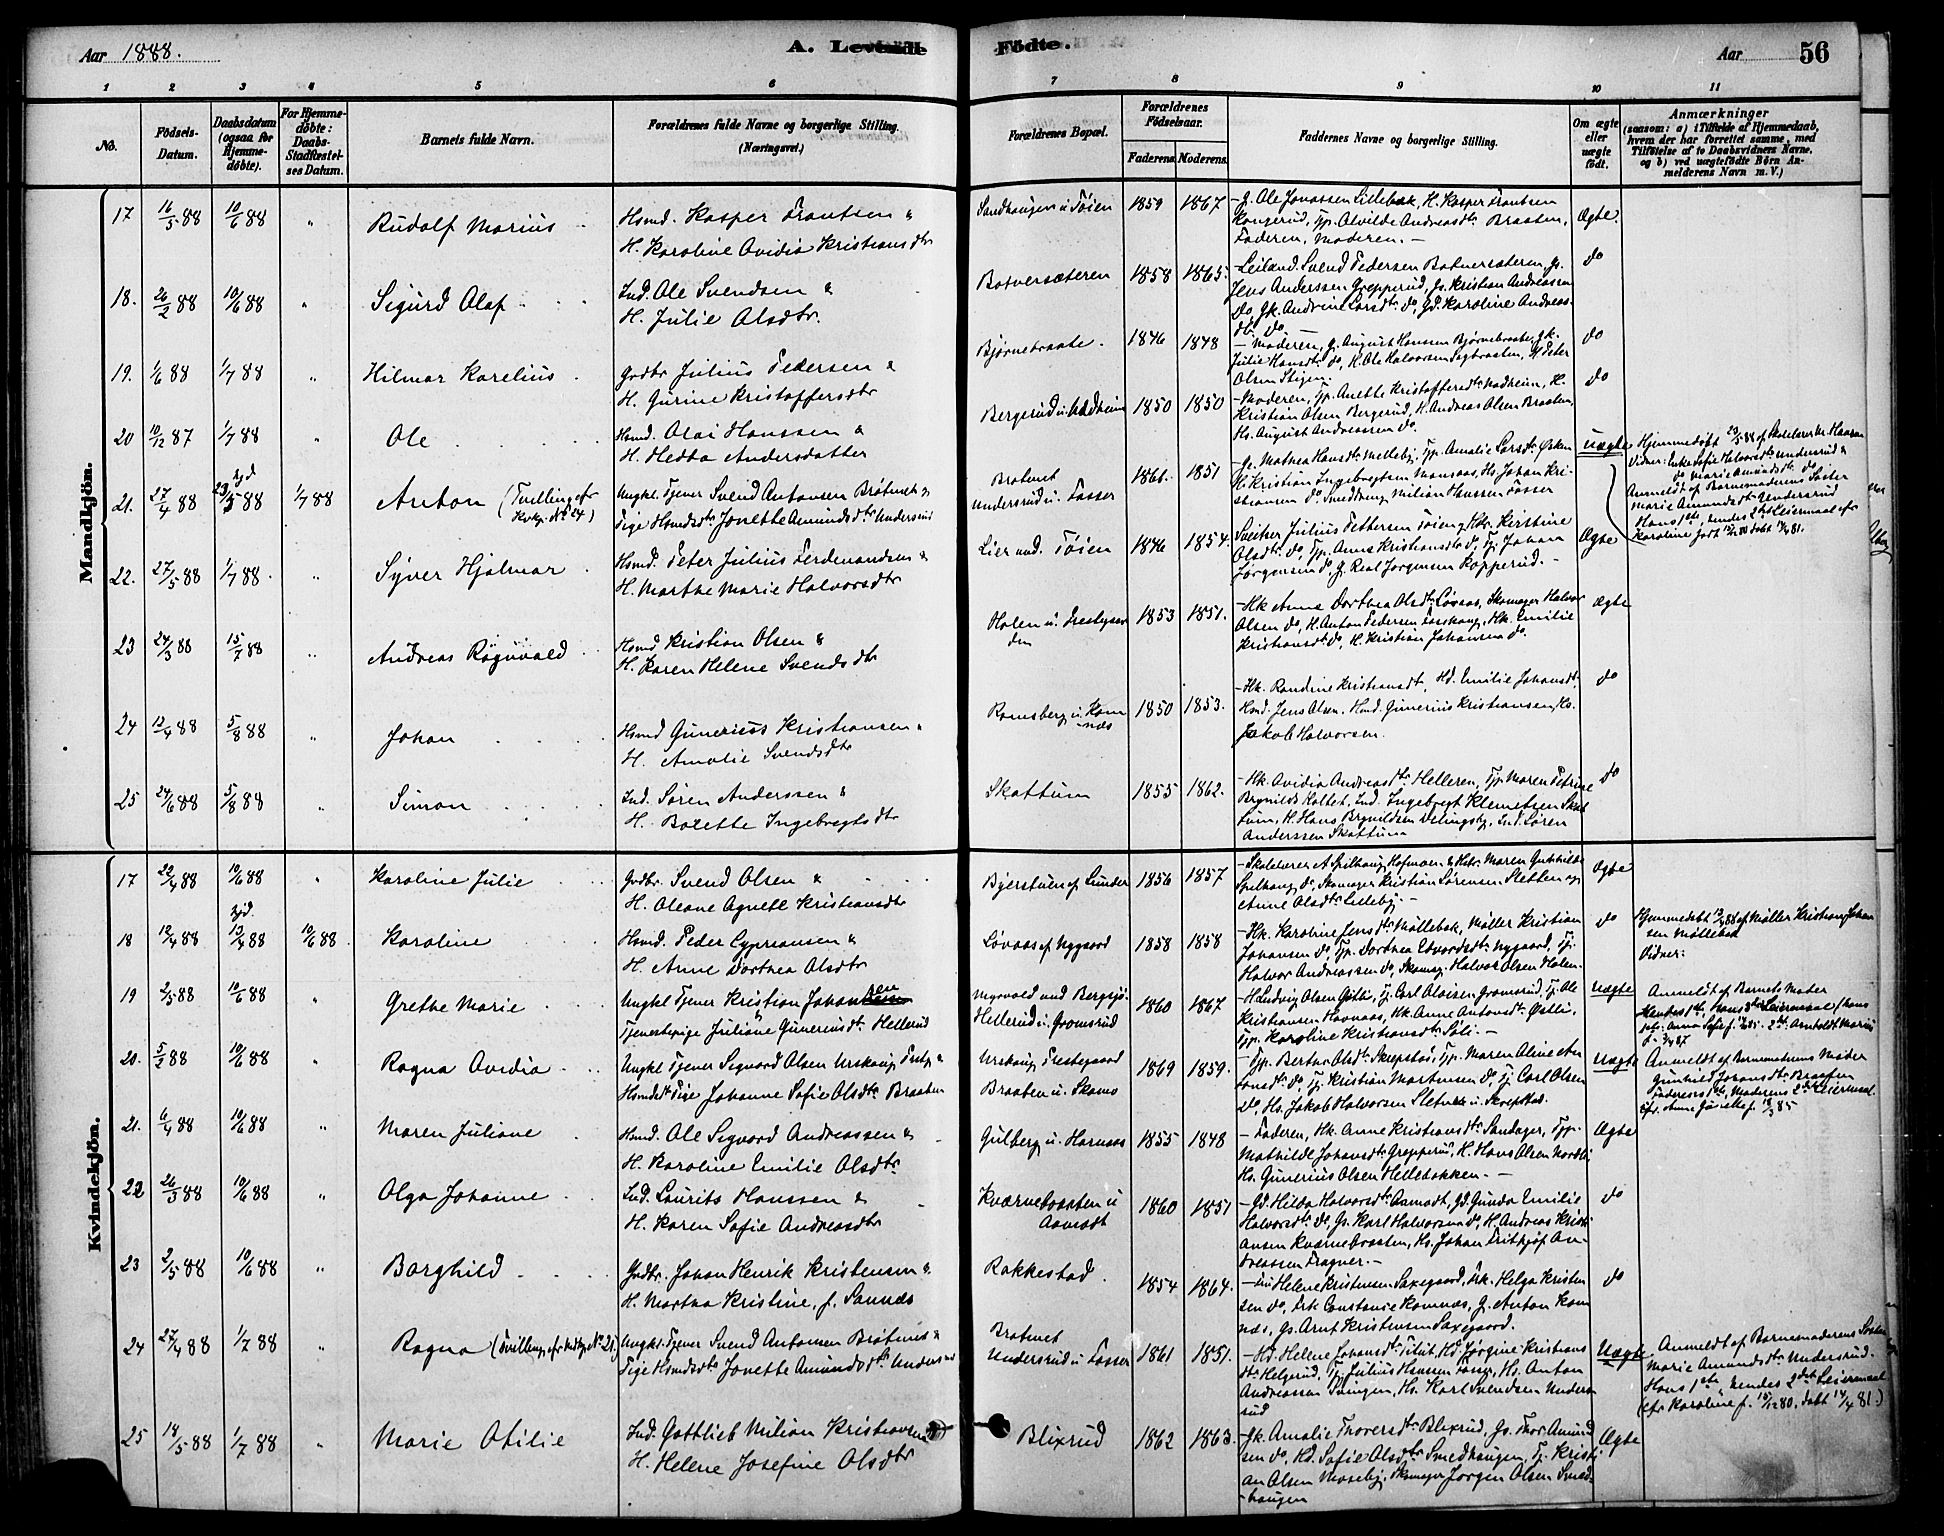 Aar 1888.
A. Levende Födte.
Aar 56
1 2 3 4 5 6 7 8 9 10 11
No.
Födsels-Datum.
Daabsdatum (ogsaa for Hjemmedöbte).
For Hjemmedöbte: Daabs-Stadfæstelses Datum.
Barnets fulde Navn.
Forældrenes fulde Navne og borgerlige Stilling.
(Næringsvei.)
Forældrenes Bopæl.
Forældrenes Födselsaar.
Faderens. Moderens.
Faddernes Navne og borgerlige Stilling.
Om ægte eller uægte født.
Anmærkninger
(saasom: a) i Tilfælde af Hjemmedaab, hvem der har forrettet samme, med Tilföielse af to Daabsvidners Navne, og b) ved uægtefödte Börn Anmelderens Navn m. V.)
Mandkjön.
17 16/5 88 10/6 88 " Rudolf Marius
Hsmd. Kasper Frantsen &
H. Karoline Ovidia Kristiansdtr
Sandhaugen u. Töien 1859 1867
G. Ole Jonassen Lillebæk, H. Kasper Frantsen
Kongerud, Tp. Alvilde Andreasdtr Braaten,
Faderen, Moderen. —
Ægte.
18. 26/2 88 10/6 88 " Sigurd Olaf
Ind. Ole Svendsen &
H. Julie Olsdtr.
Botnersæteren 1858 1865.
Leiland. Svend Pedersen Botnersæteren, Gs.
Jens Anderssen Grepperud, Gs. Kristian Andreassen
Do, Gk. Andrine Larsdtr do, Gd. Karoline Andreasdtr do
do
19. 1/6 88 1/7 88 " Hilmar Karelius
Grdbr Julius Pedersen &
H. Gurine Kristoffersdtr
Bjørnebraate. 1846 1848
Moderen, G. August Hansen Bjørnebraate, Gk.
Julie Hansdtr do, H. Ole Halvorsen Sagbraaten, H Peter
Olsen Stigen
do
20 10/12 87 1/7 88 " Ole
Hsmd. Olai Hanssen &
H. Hedda Andersdatter
Bergerud u. Nadheim 1850 1850
Moderen, Tp. Anette Kristoffersdtr Nadheim, H.
Kristian Olsen Bergerud, H. Andreas Olsen Braaten,
Hs. August Andreassen do.
do
21. 27/4 88 23/5 88 1/7 88 Anton (Tvilling cfr Kvkj. No 24)
Ungkl. Tjener Svend Antonsen Bråtnet &
Pige Hsmdsdtr Jonette Amundsdtr Undersrud
Bråtnet
Undersrud u. Fosser 1861. 1851
Gs. Mathea Hansdtr Mellebÿ, Tp. Amalie Larsdtr
H. Kristian Ingebregtsen Monsaas, Hs. Johan Kristiansen do, Smedsvend Milian Hansen Fosser
uægte
Hjemmedöbt 23/5 88 af Skolelærer
Vidner: Enke Sofie Halvorsdtr Undersrud &
do Marie Amundsdtr do
Anmeldt af Barnemoderens Søster
Marie Amundsdtr Undersrud
Hans 1ste, hendes 2det Leiermaal cfr
Karoline født 15/12 80 døbt 17/4 81.
22. 27/5 88 1/7 88. " Syver Hjalmar
Hsmd. Peter Julius Ferdinandsen &
H. Marthe Marie Halvorsdtr
Lier und. Töien 1846 1854.
Sveitser Julius Pettersen Töien, Hstr. Kirstine
Olsdtr do, Tp. Anne Kristiansdtr do, Tj Johan
Jørgensen do, G. Real Jørgensen Kopperud. —
Ægte
23 24/3 88 15/7 88 " Andreas Røgnvald
Hsmd Kristian Olsen &
H. Karen Helene Svendsdtr
Holen u. Prestegaarden 1853 1851.
Hk. Anne Dorthea Olsdtr Løvaas, Skomager Halvor
Olsen do, H. Anton Pedersen Forshaug, Hk. Emilie
Kristiansdtr do, H. Kristian Johansen do.
Ægte
24 13/4 88 5/8 88 " Johan
Hsmd Gunerius Kristiansen &
H. Amalie Svendsdtr
Ramsberg u. Komnæs 1850 1853.
Hk. Randine Kristiansdtr, Hd. Emilie Johansdtr,
Hsmd. Jens Olsen, Hsmd. Gunerius Kristiansen, Hs.
Jakob Halvorsen.
do
25 24/6 88 5/8 88 " Simon
Ind. Søren Anderssen &
H. Borette Ingebregtsdtr
Skattum 1855 1862.
Hk. Ovidia Andreasdtr Helleren, Tp. Maren Petrine
Brynilds Koltet, Ind. Ingebregt Klemetsen Skattum, H. Hans Brynildsen Velingsby, Ind. Søren
Anderssen Skattum
do
Kvindekjön.
17 22/4 88 10/6 88 " Karoline Julie
Grdbr. Svend Olsen &
H. Oleane Agnete Kristiansdtr
Byerstuen af Lunder 1856 1857
Skolelærer A Spilhaug Hofmoen & Hstr. Maren
Spilhaug do, Skomager Kristian Sørensen Sletten og
Anne Olsdtr Lilleby. —
Ægte
18 12/4 88 13/4 88 10/6 88. Karoline
Hsmd. Peder Cypriansen &
H. Anne Dorthea Olsdtr
Løvaas af Nygaard 1858 1858
Hk. Karoline Jensdtr Møllebæk, Møller Kristian
Johansen do, Tp. Dorthea Edvardsdtr Nygaard, Tj.
Halvor Andreassen do, Skomag. Halvor Olsen Holen.
do
Hjemmedøbt 13/4 88 af Møller Kristian Johansen Møllebæk
Vidner:
19 2/5 88 10/6 88 " Grethe Marie
Ungkl Tjener Kristian Johansen
Tjenestepige Juliane Guneriusdtr Hellerud
Myrvold und Bergsjø.
Hellerud u. Gromsrud 1860 1867
H. Ludvig Olsen Götli, Tj. Carl Olaisen Gromsrud, Tj. Ole
Kristiansen Havnaas, Hk. Anne Antonsdtr Østli,
Tp. Karoline Kristiansdtr Søli. —
Uægte
Anmeldt af Barnets Moder
Hendes 1ste, Hans 3die Leiermaal
20. 5/2 88 10/6 88 " Ragna Ovidia
Ungkl Tjener Sigvard Olsen Urskoug Prestg &
Hsmdsdtr Pige Johanne Sofie Olsdtr Braaten
Urskoug Prestegaard
Braaten u. Skams 1869 1859.
Tp. Berthe Olsdtr Skrepstad, Tp. Maren Oline Antonsdtr do, Tj. Kristian Martinsen do, Tj Carl Olsen
do, Hs. Jakob Halvorsen Sletner u. Skrepstad.
Uægte
Anmeldt af Barnemoderens Moder
Gunhild Johansdtr Braaten
Faderens 1ste, Moderens 2det Leiermaal
21. 6/4 88 10/6 88 " Maren Juliane
Hsmd. Ole Sigvard Andreassen &
H. Karoline Emilie Olsdtr.
Gulberg u. Harnaas 1855 1848
Faderen, Hk. Anne Kristiansdtr Sandager, Tp.
Mathilde Johansdtr Grepperud, H. Hans Olsen Nordli
Hs. Gunerius Olsen Hellebakken. —
Ægte
22 26/3 88 10/6 88 " Olga Johanne
Ind. Laurits Hanssen &
H. Karen Sofie Andreasdtr
Kværnebraaten u Aamodt 1860 1851
Gd. Hilda Halvorsdtr Aamodt, Gd. Gunda Emilie
Halvorsdtr do, Gs. Karl Halvorsen do, H. Andreas Kristiansen Kværnebraaten, Hs. Johan Fritjof Andreassen Fragner. —
do
23 2/5 88 10/6 88 " Borghild
Grdbr. Johan Henrik Kristensen &
H. Martha Kristine, f. Sannæs
Rakkestad. 1854 1864.
Helene Kristensen Saxegaard, Frk. Helga Kristensen do, Frk Constance Komnæs, G. Anton Komnæs, Gs. Arnt Kristensen Saxegaard.
do
24 27/4 88 1/7 88 " Ragna (Tvilling cfr Mdkj No 21)
Ungkl. Tjener Svend Antonsen Bråtnet &
Pige Hsmdsdtr Jonette Amundsdtr Undersrud
Bråtnet
Undersrud u Fosser 1861 1851.
Hd. Helene Johansdtr, Hd. Jørgine Kristiansdtr Helgerud, Tj. Julius Hansen Foug, Hs. Anton
Andreassen Svingen, Hs. Karl Svendsen Undersrud
Uægte
Anmeldt af Barnemoderens Søster
Marie Amundsdtr Undersrud.
Hans 1ste hendes 2det Leiermaal
(cfr Karoline f. 15/12 80, døbt 17/4 81.)
25 18/5 88 1/7 88 " Marie Otilie
Ind. Gottlieb Milian Kristiansen &
H. Helene Josefine Olsdtr
Blixrud 1862 1863.
Gk. Amalie Thoresdtr Blixrud, Gs. Thor Amundsen do, Hd. Sofie Olsdtr Smedhaugen, Tj. Kristian Olsen Moseby, Skomager Jørgen Olsen Smedhaugen
Ægte